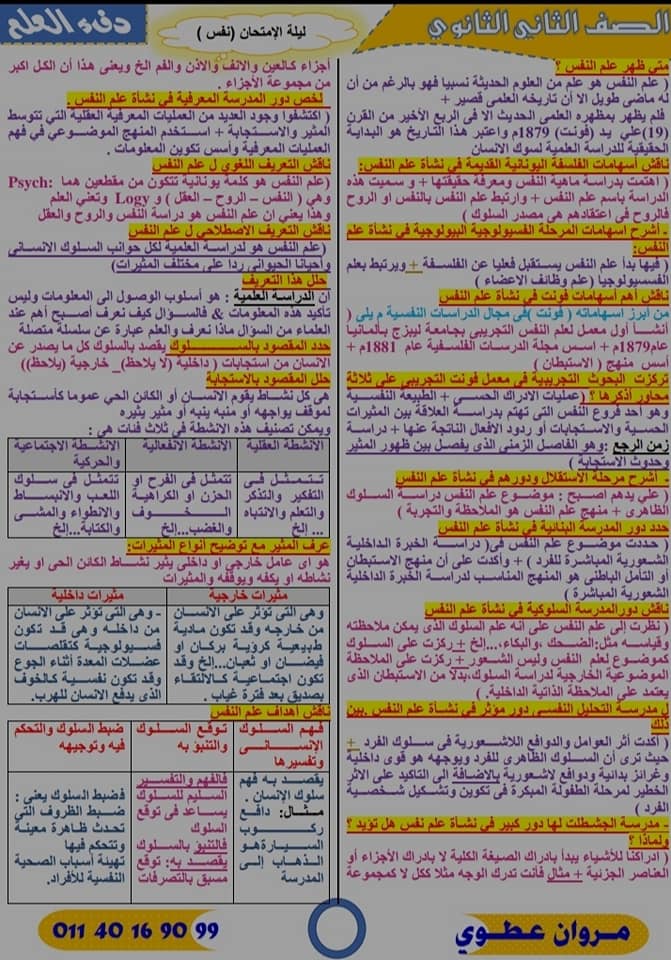 الصف الثاني الثانوي
ليلة الإمتحان (نفس )
دفء العلم
متى ظهر علم النفس ؟
( علم النفس هو علم من العلوم الحديثة نسبيا فهو بالرغم من أن
له ماضى طويل الا أن تاريخه العلمى قصير +
فلم يظهر بمظهره العلمى الحديث الا فى الربع الأخير من القرن
19)على يد (فونت) 1879م واعتبر هذا التاريخ هو البداية
الحقيقية للدراسة العلمية لسوك الانسان
ناقش أسهامات الفلسفة اليونانية القديمة فى نشأة علم النفس:
( اهتمت بدراسة ماهية النفس ومعرفة حقيقتها + و سميت هذه
الدراسة باسم علم النفس + وارتبط علم النفس بالنفس او الروح
فالروح فى اعتقادهم هى مصدر السلوك )
- أشرح اسهامات المرحلة الفسيولوجية البيولوجية فى نشأة علم
النفس:
( فيها بدأ علم النفس يستقبل فعليا عن الفلسفة + ويرتبط بعلم
الفسيولوجيا (علم وظائف الاعضاء )
ناقش أهم أسهامات فونت فى نشأة علم النفس
من أبرز اسهاماته ( فونت )فى مجال الدراسات النفسية م يلى (
أنشأ أول معمل لعلم النفس التجريبى بجامعة ليبزج بألمانيا
عام1879م + اسس مجلة الدرسات الفلسفية عام 1881م +
اسس منهج ( الاستبطان )
تركزت البحوث التجريبية فى معمل فونت التجريبى على ثلاثة
محاور أذكرها ؟ (عمليات الادراك الحسى + الطبيعة النفسية
وهو أحد فروع النفس التى تهتم بدراسة العلاقة بين المثيرات
الحسية والاستجابات أو ردود الافعال الناتجة عنها + دراسة
زمن الرجع :وهو الفاصل الزمنى الذى يفصل بين ظهور المثير
وحدوث الاستجابة )
- أشرح مرحلة الاستقلال ودورهم فى نشأة علم النفس
( على يدهم اصبح : موضوع علم النفس دراسة السلوك
الظاهرى + منهج علم النفس هو الملاحظة والتجربة )
حدد دور المدرسة البنائية فى نشأة علم النفس
( حددت موضوع علم النفس فى( دراسة الخبرة الداخلية
الشعورية المباشرة للفرد ) + وأكدت على أن منهج الاستبطان
أو التأمل الباطنى هو المنهج المناسب لدراسة الخبرة الداخلية
الشعورية المباشرة )
ناقش دورالمدرسة السلوكية فى نشأة علم النفس
( نظرت إلى علم النفس على أنه علم السلوك الذى يمكن ملاحظته
وقياسه مثل:الضحك ،والبكاء،...إلخ + ركزت على السلوك
كموضوع لعلم النفس وليس الشعور + ركزت على الملاحظة
الموضوعية الخارجية لدراسة السلوك،بدلا من الاستبطان الذى
يعتمد على الملاحظة الذاتية الداخلية. )
ن مدرسة التحليل النفسى دور مؤثر فى نشأة علم النفس .بين
ذلك
( أكدت أثر العوامل والدوافع اللاشعورية فى سلوك الفرد +
حيث ترى أن السلوك الظاهرى للفرد ويوجهه هو قوى داخلية
وغرائز بدائية ودوافع لاشعورية بالاضافة الى التاكيد على الاثر
الخطير لمرحلة الطفولة المبكرة فى تكوين وتشكيل شخصية
الفرد )
- مدرسة الجشطلت لها دور كبير في نشأة علم نفس هل تؤيد ؟
ولماذا ؟
( ادراكنا للأشياء يبدأ بادراك الصيغة الكلية لا بادراك الاجزاء أو
العناصر الجزئية + مثال فأنت تدرك الوجه مثلا ككل لا كمجموعة
أجزاء كالعين والانف والأذن والفم الخ ويعنى هذا أن الكل اكبر
من مجموعة الأجزاء .
لخص دور المدرسة المعرفية فى نشأة علم النفس .
( اكتشفوا وجود العديد من العمليات المعرفية العقلية التي تتوسط
المثير والاستجابة + استخدم المنهج الموضوعي في فهم
العمليات المعرفية وأسس تكوين المعلومات .
ناقش التعريف اللغوي ل علم النفس
(علم النفس هو كلمة يونانية تتكون من مقطعين هما :Psych
وهي ( النفس – الروح – العقل ) و Logy وتعني العلم
وهذا يعني ان علم النفس هو دراسة النفس والروح والعقل
ناقش التعريف الاصطلاحي ل علم النفس
(علم النفس هو لدراسة العلمية لكل جوانب السلوك الانساني
وأحيانا الحيواني ردا على مختلف المثيرات)
حلل هذا التعريف
ان الدراسة العلمية : هو أسلوب الوصول الى المعلومات وليس
تأكيد هذه المعلومات & فالسؤال كيف نعرف أصبح أهم عند
العلماء من السؤال ماذا نعرف والعلم عبارة عن سلسلة متصلة
حدد المقصود بالسلوك يقصد بالسلوك كل ما يصدر عن
الانسان من استجابات ( داخلية (لا يلاحظ)_ خارجية (يلاحظ))
حلل المقصود بالاستجابة
هى كل نشاط يقوم الانسان أو الكائن الحي عموما كأستجابة
لموقف يواجهه أو منبه ينبه أو مثير يثيره
ويمكن تصنيف هذه الانشطة في ثلاث فنات هى :
الانشطة العقلية
الأنشطة الانفعالية
الانشطة الاجتماعية والحركية
تتمثل فى التفكير والتذكر والتعلم والانتباه ... إلخ
تتمثل فى الفرح او الحزن او الكراهية او الخوف والغضب...إلخ
تتمثل فى سلوك اللعب والانبساط والانطواء والمشى والكتابة...إلخ
عرف المثير مع توضيح أنواع المثيرات:
هو اى عامل خارجى او داخلى يثير نشاط الكائن الحى او يغير
نشاطه او يكفه ويوقفه والمثيرات
مثيرات خارجية
مثيرات داخلية
وهى التى تؤثر على الانسان من خارجه وقد تكون مادية طبيعية كرؤية بركان او فيضان او ثعبان...إلخ وقد تكون اجتماعية كالالتقاء بصديق بعد فترة غياب .
- وهى التى تؤثر على الانسان من داخله وهى قد تكون فسيولوجية كتقلصات عضلات المعدة أثناء الجوع وقد تكون نفسية كالخوف الذى يدفع الانسان للهرب.
ناقش أهداف علم النفس
فهم السلوك الإنسانى وتفسيرها
توقع السلوك والتنبؤ به
ضبط السلوك والتحكم فيه وتوجيهه
يقصد به فهم سلوك الإنسان . مثال: دافع ركوب السيارة هو الذهاب إلى المدرسة
فالفهم والتفسير السليم للسلوك يساعد فى توقع السلوك
فالتنبؤ بالسلوك يقصد به: توقع مسبق بالتصرفات
فضبط السلوك يعنى : ضبط الظروف التى تحدث ظاهرة معينة وتتحكم فيها
تهيئة أسباب الصحية النفسية للأفراد.
مروان عطوي
011 40 16 90 99